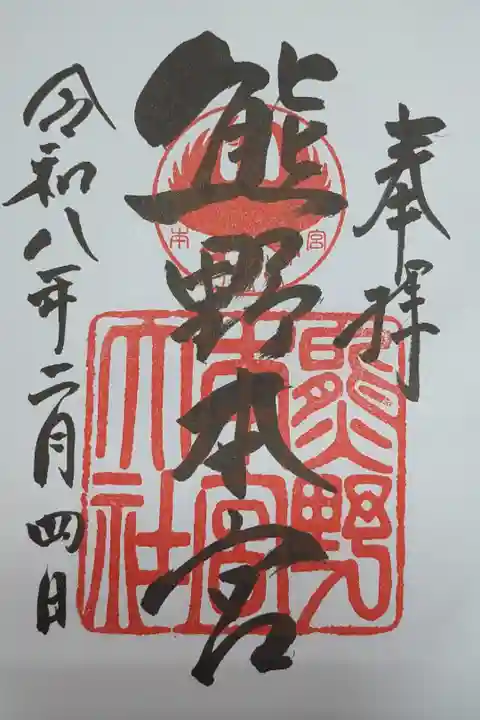 奉拝
熊野本宮
令和八年二月四日
熊野
本宮
大社
本 宮